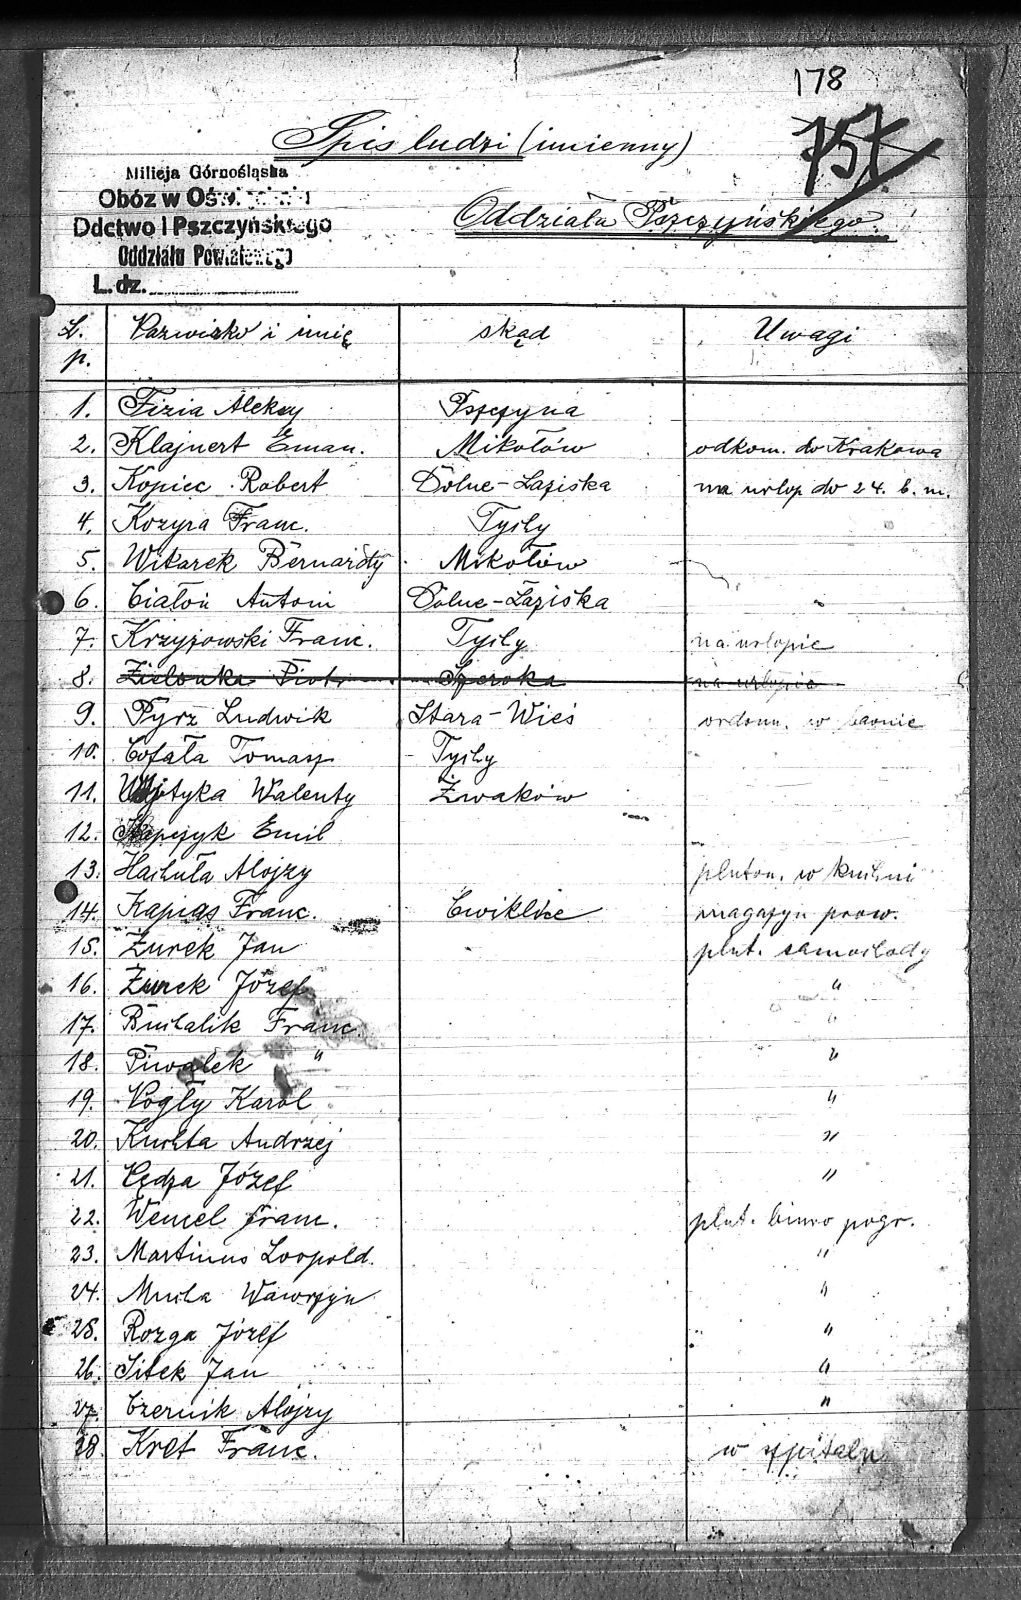 178
757
Spis ludzi (imienny)
Milicja Górnośląska
Obóz w
Ddctwo I Pszczyńskiego
Oddziału Powiatowego
L.dz.
Oddziała Pszczyńskiego.
L. p. Nazwisko i imię skąd Uwagi
1. Fizia Aleksy Pszczyna
2. Klajnert Eman. Mikołów odkom. do Krakowa
3. Kopiec Robert Dolne-Łaziska na urlop do 24. b. m.
4. Kozyra Franc. Tychy
5. Wikarek Bernardy Mikołów
6. Białoń Antoni Dolne-Łaziska
7. Krzyżowski Franc. Tychy na urlopie
8. Zielonka Piotr Szeroka na urlopie
9. Pyrz Ludwik Stara-Wieś ordonn. w
10. Cofała Tomasz Tychy
11. Wojtyka Walenty Żwaków
12. Emil
13. Hachuła Alojzy pluton. w kuchni
14. Kapias Franc. Ćwiklice magazyn prow.
15. Żurek Jan plut. samochody
16. Żurek Józef "
17. Buchalik Franc. "
18. Piwalek " "
19. Nogły Karol "
20. Kuchta Andrzej "
21. Józef "
22. Wencel Franc. plut. biuro pogr.
23. Martinus Leopold. "
24. Mucha Wawrzyn "
25. Rozga Józef "
26. Sitek Jan "
27. Czernik Alojzy "
28. Kret Franc. w szpitalu